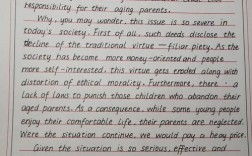 responsibility for their aging parents.
Why, you may wonder, this issue is so severe in
today's society. First of all, such deeds disclose the
decline of the traditional virtue — filiar piety. As the
society has become more money-oriented and people
more self-interested, this virtue gets eroded along with
distortion of ethical morality. Furthermore, there
lack of laws to punish those children who abandon their
aged parents. As a consequence, while some young people
enjoy their comfortable life, their parents are neglected.
Were the situation continue, we would pay a heavy price.
Given the situation is so serious, effective and